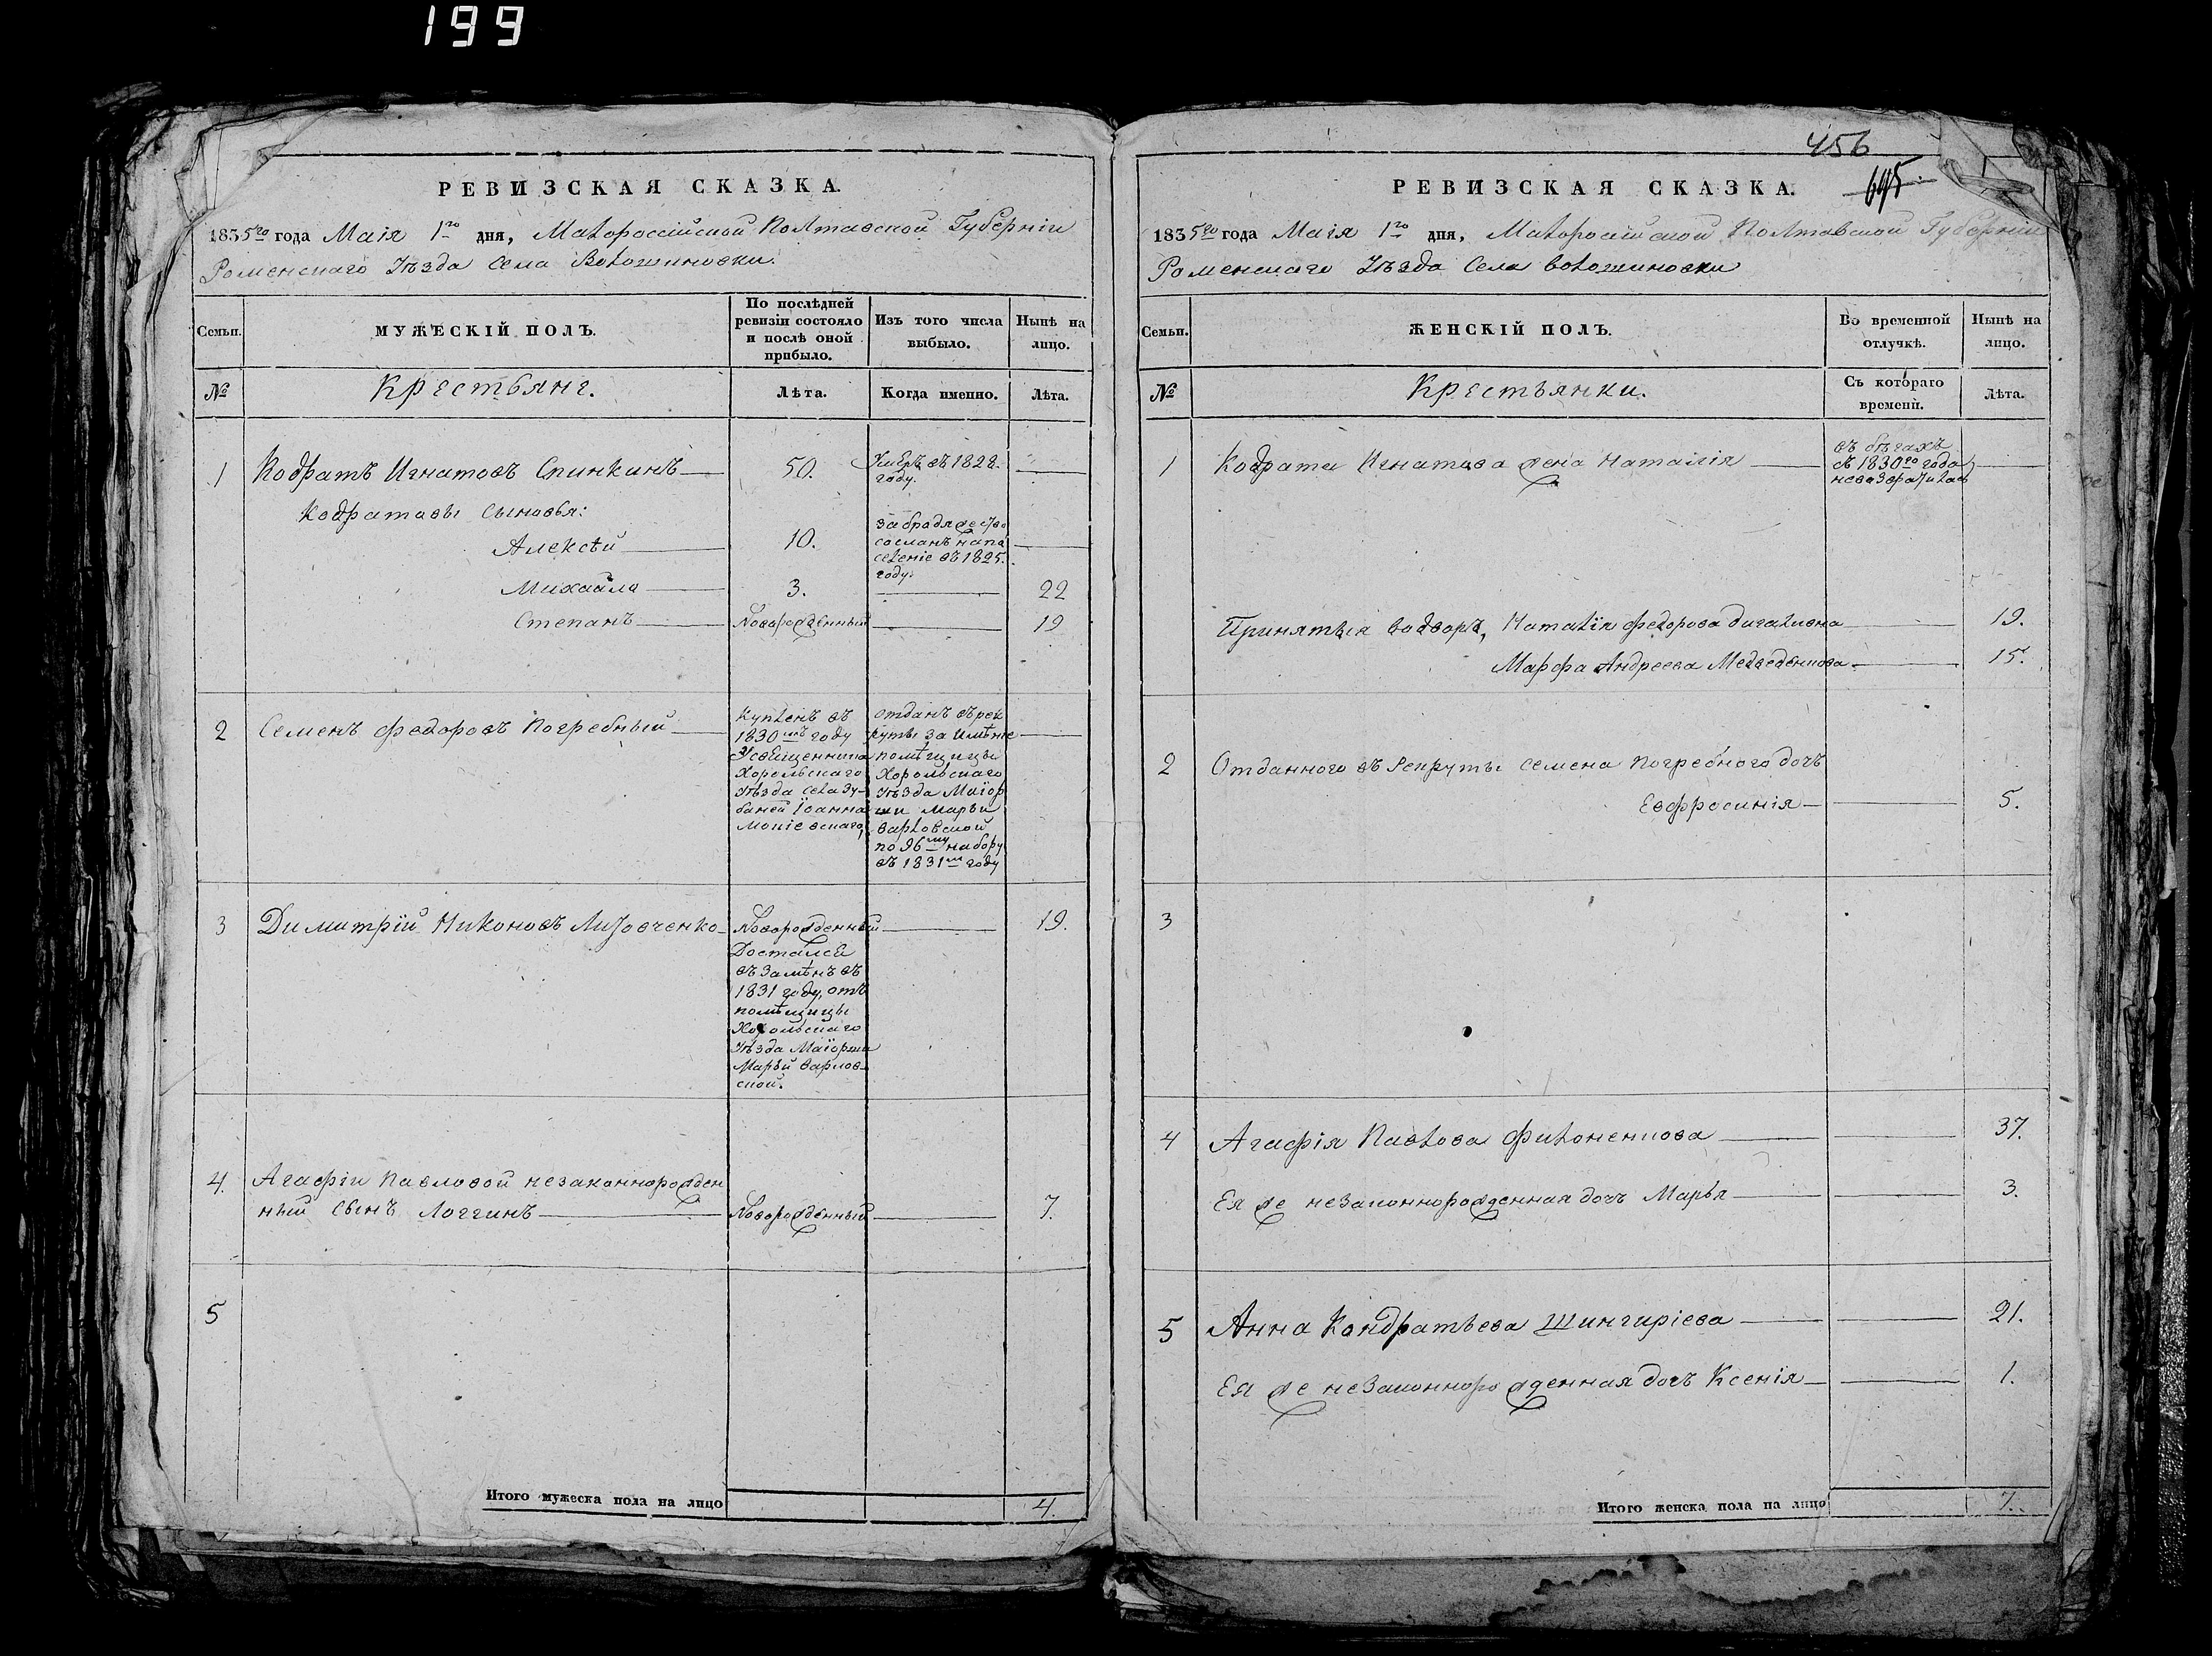 199
РЕВИЗСКАЯ СКАЗКА.
1835го года Маія 1го дня, Малороссійской Полтавской Губерніи
Роменскаго Уѣзда Села Волошиновки.
Семьи.
МУЖЕСКІЙ ПОЛЪ.
По послѣдней ревизіи состояло и послѣ оной прибыло.
Изъ того числа выбыло.
Нынѣ на лицо.
№
Крестьяне.
Лѣта.
Когда именно.
Лѣта.
1
Кодратъ Игнатовъ Спинкинъ
50.
Умеръ въ 1828.
году.
Кодратовы Сыновья:
Алексѣй
10.
за бродяжество
сосланъ на по
селеніе въ 1825.
году.
Михайла
3.
22
Степанъ
Новорожденный
19
2
Семенъ Федоровъ Погребный
Купленъ въ
1830мъ году
У священника
Хорольскаго
Уѣзда села Зу-
баней Іоанна
отданъ въ рек
руты за имѣніе
помѣщицы
Хорольскаго
Уѣзда Маіор
ши Марьи
Варловской
по 96му набору
въ 1831м году
3
Димитрій Никоновъ Лизовченко
Новорожденный
Достался
въ замѣнъ въ
1831 году, отъ
помѣщицы
Хорольскаго
Уѣзда Маіорши
Марьи Варлов-
ской.
19.
4.
Агафіи Павловой незаконнорожден
ный сынъ Логгинъ
Новорожденный
7.
5
Итого мужеска пола на лицо
4.
456
695.
РЕВИЗСКАЯ СКАЗКА.
1835го года Маія 1го дня, Малоросійской Полтавской Губерніи
Роменскаго Уѣзда Села Волошиновки
Семьи.
ЖЕНСКІЙ ПОЛЪ.
Во временной отлучкѣ.
Нынѣ на лицо.
№
Крестьянки.
Съ котораго времени.
Лѣта.
1
Кодрата Игнатова жена Наталія
въ бѣгахъ
съ 1830го года
невозвратилась
Принятыя водворъ, Наталія Федорова
19.
Марфа Андреева Медведенкова
15.
2
Отданного въ Рекруты Семена Погребного дочъ
Евфросинія
5.
3
4
Агафія Павлова Филоненкова
37.
Ея же незаконнорожденная дочъ Марья
3.
5
Анна Кондратьева Шингиріева
21.
Ея же незаконнорожденная дочъ Ксенія
1.
Итого женска пола на лицо
7.